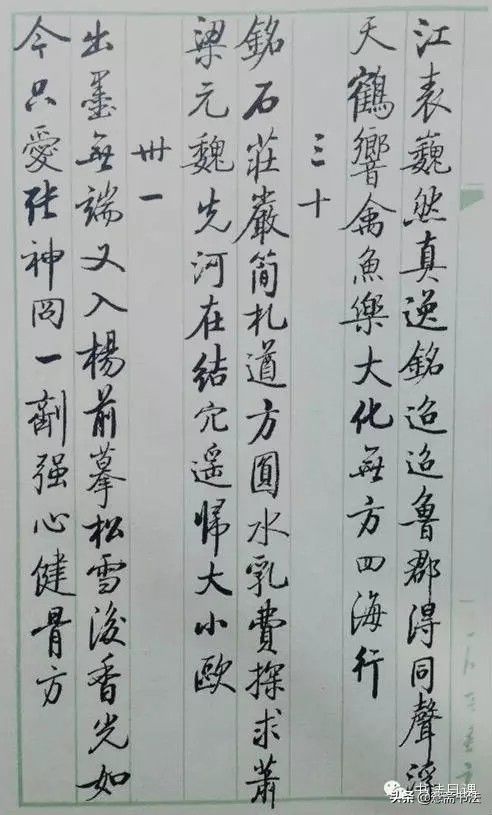 江表巍然真逸銘迢迢魯郡得同聲浮
天鶴響禽魚樂大化無方四海行
三十
銘石莊嚴簡札遒方圓水乳費探求蕭
梁元魏先河在結穴遥歸大小歐
卅一
出墨無端又入楊前摹松雪後香光如
今只愛張神冏一劑强心健骨方
书法日课
头条 @恕斋书法